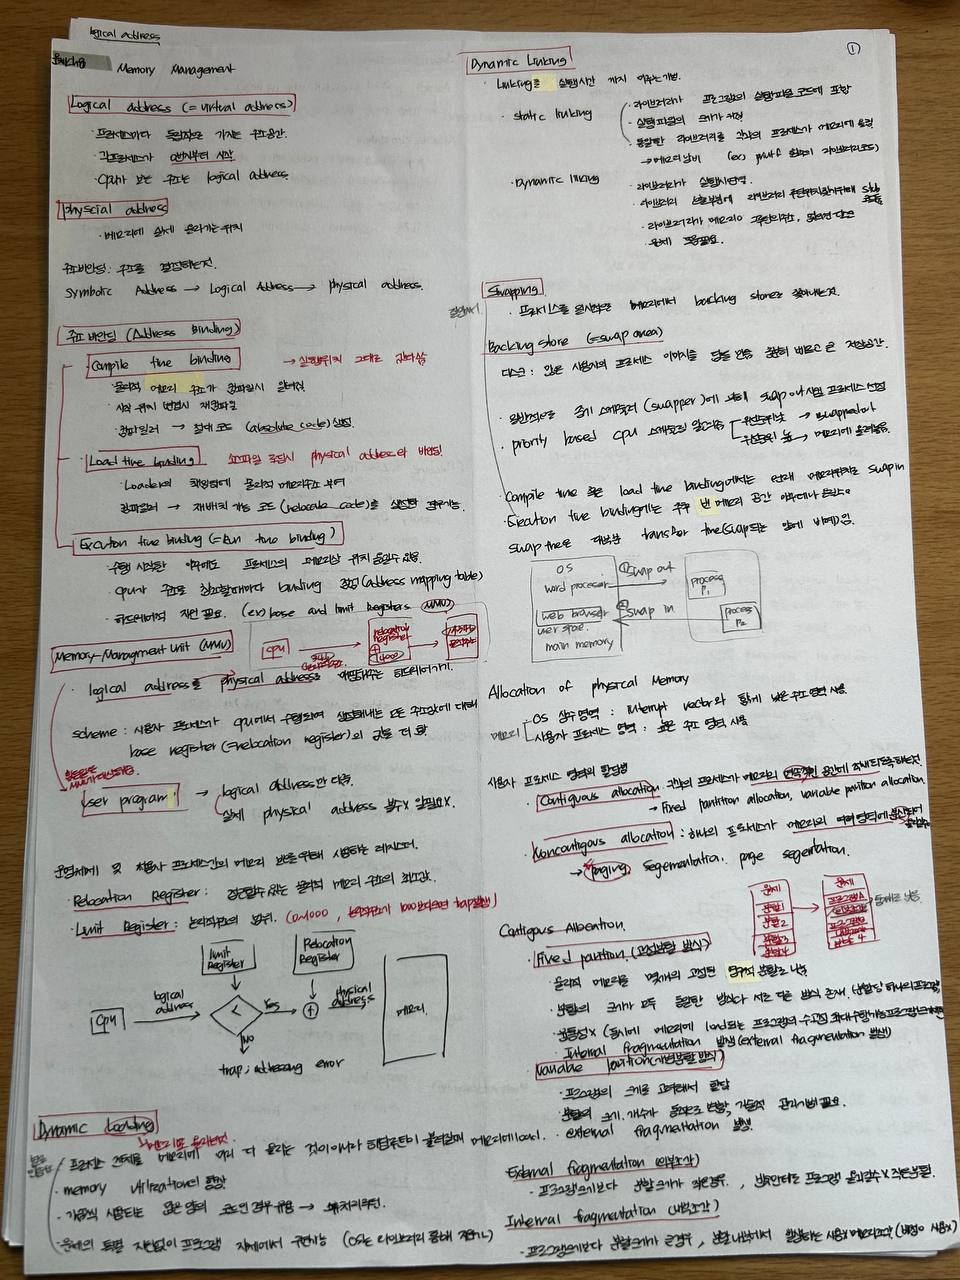 logical address
Memory Management
Logical address (= virtual address)
· 프로세스마다 독립적으로 가지는 주소공간.
· 각프로세스가 0번지부터 시작
· CPU가 보는 주소는 logical address.
physical address
· 메모리에 실제 올라가는 위치
주소바인딩: 주소를 결정하는것.
Symbolic Address → Logical Address → physical address.
주소 바인딩 (Address Binding)
Compile time binding
· 물리적 메모리 주소가 컴파일시 알려짐
· 시작 위치 변경시 재컴파일
· 컴파일러 → 절대 코드 (absolute code) 생성.
Load time binding physical address
· Loader의 책임하에 물리적 메모리주소 부여
컴파일러 → 재배치 가능 코드 (relocate code)를 생성한 경우가능.
Execution time binding (= Run time binding)
· 수행 시작한 이후에도 프로세스의 메모리상 위치 옮길수 있음.
· CPU가 주소를 참조할때마다 binding 점검 (address mapping table)
· 하드웨어적 지원 필요. (ex) base and limit Registers, MMU)
Memory-Managment unit (MMU)
CPU
relocation register
+
· logical address를 physical address로 매핑해주는 하드웨어기기.
scheme : 사용자 프로세스가 CPU에서 수행되며 생성해내는 모든 주소값에 대해
base register (=relocation register)의 값을 더함
User program
→ logical address만 다룸
실제 physical address 볼수X 알필요X.
운영체제 및 사용자 프로세스간의 메모리 보호를 위해 사용하는 레지스터.
· Relocation Register : 접근할수 있는 물리적 메모리 주소의 최소값.
· Limit Register : 논리적주소의 범위.
Limit Register
Relocation Register
CPU
logical address
<
Yes
+
physical address
메모리
NO
trap; addressing error
Dynamic Loading
· 프로세스 전체를 메모리에 미리 다 올리는 것이 아니라 해당루틴이 불려질때 메모리에 load.
· memory utilization 향상
· 가끔씩 사용되는 많은 양의 코드인 경우 유용 → 예외처리루틴.
· 운영체제의 특별 지원없이 프로그램 자체에서 구현가능 (OS는 라이브러리 통해 지원가능)
①
Dynamic Linking
· Linking을 실행시간 까지 미루는기법.
· static linking
· 라이브러리가 프로그램의 실행파일 코드에 포함
· 실행파일의 크기가 커짐
· 동일한 라이브러리를 각각의 프로세스가 메모리에 올림
→ 메모리 낭비 (ex) printf 함수의 라이브러리코드)
· Dynamic linking
· 라이브러리가 실행시 연결.
· 라이브러리가 메모리에 있으면 그 주소
· 운영체제 도움필요.
Swapping
· 프로세스를 일시적으로 메모리에서 backing store로 쫓아내는것.
Backing store (=swap area)
디스크 : 많은 사용자의 프로세스 이미지를 담을 만큼 충분히 빠르고 큰 저장공간.
· 일반적으로 중기 스케줄러 (swapper)에 의해 swap out 시킬 프로세스 선정
· priority based CPU 스케줄링 알고리즘
우선순위 낮 → swapped out
우선순위 높 → 메모리에 올려놓음.
· Compile time 혹은 load time binding에서는 원래 메모리위치로 swap in
· Execution time binding에는 추후 빈 메모리 공간 아무데나 올릴수o
swap time은 대부분 transfer time (swap되는 양에 비례)임.
OS
word procesor
web browser
user space
main memory
① swap out
② swap in
process P1
process P2
Allocation of physical Memory
메모리
OS 상주 영역 : Interrupt vector와 함께 낮은 주소 영역 사용
사용자 프로세스 영역 : 높은 주소 영역 사용
사용자 프로세스 영역의 할당방법
· Contiguous allocation : 각각의 프로세스가 메모리의 연속적인 공간에 적재되도록하는것.
→ Fixed partition allocation, variable partition allocation.
· Noncontigous allocation : 하나의 프로세스가 메모리의 여러영역에 분산되어
→ paging, segementation. page segentation.
Contigous Allocation.
· Fixed partition. (고정분할 방식)
· 물리적 메모리를 몇개의 고정된 영구적 분할로 나눔
· 분할의 크기가 모두 동일한 방식과 서로 다른 방식 존재.
· Internal fragmentation 발생 (external fragmentation 발생)
Variable partition (가변분할 방식)
· 프로그램의 크기를 고려해서 할당
· 분할의 크기. 개수가 동적으로 변함, 기술적 관리기법 필요.
· external fragmentation 발생.
External fragmentation (외부조각)
· 프로그램크기보다 분할크기가 작은경우,
Internal fragmentation (내부조각)
· 프로그램크기보다 분할크기가 큰경우, 분할내부에서 발생하는 사용X 메모리조각